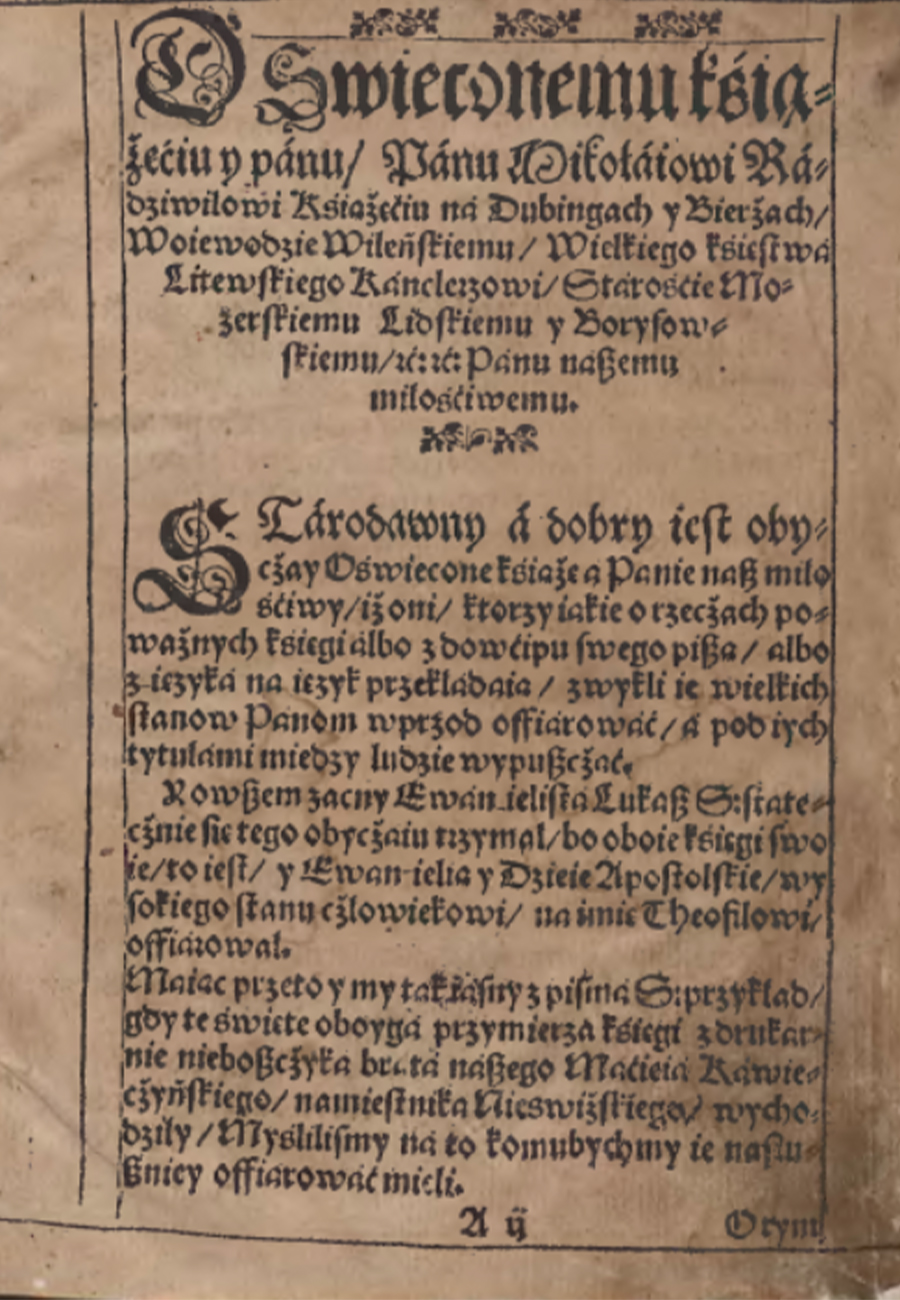 OSwieconemu kśią⸗
żećiu y pánu/ Pánu Mikołáiowi Rá⸗
dziwilowi Książećiu ná Dubingach y Bierżach/
Woiewodzie Wileńſkiemu/ Wielkiego kśieſtwá
Litewſkiego Kánclerzowi/ Stárośćie Mo⸗
żerſkiemu Lidſkiemu y Boryſow⸗
ſkiemu/ ꝛć: ꝛć: Pánu náßemu
miłośćiwemu.
STárodawny á dobry ieſt oby⸗
cżay Oświecone kśiąże a Panie naß miło
śćiwy/ iż oni/ ktorzy iakie o rzecżach po⸗
ważnych kśięgi álbo z dowćipu ſwego pißa/ albo
z ięzyká na ięzyk przekładaia/ zwykli ie wielkich
ſtanow Panom wprzod offiárowáć/ á pod iych
tytułámi miedzy ludzie wypußcżać.
Nowßem zacny Ewanieliſta Lukaß S: ſtate⸗
cżnie się tego obycżaiu trzymał/ bo oboie kśięgi ſwo
ie/ to ieſt/ y Ewanielią y Dzieie Apoſtolſkie/ wy
ſokiego ſtanu cżłowiekowi/ na imię Theofilowi/
offiárował.
Máiąc przeto y my tak iáſny z piſmá S: przykład/
gdy te święte oboygá przymierza kśięgi z drukar⸗
nie nieboßcżyká brátá náßego Máćieiá Káwie⸗
cżyńſkiego/ namieſtniká Nieświżſkiego/ wycho⸗
dziły/ Myśliliſmy ná to komubychmy ie naſłu⸗
ßniey offiárowáć mieli.
A ij Otym